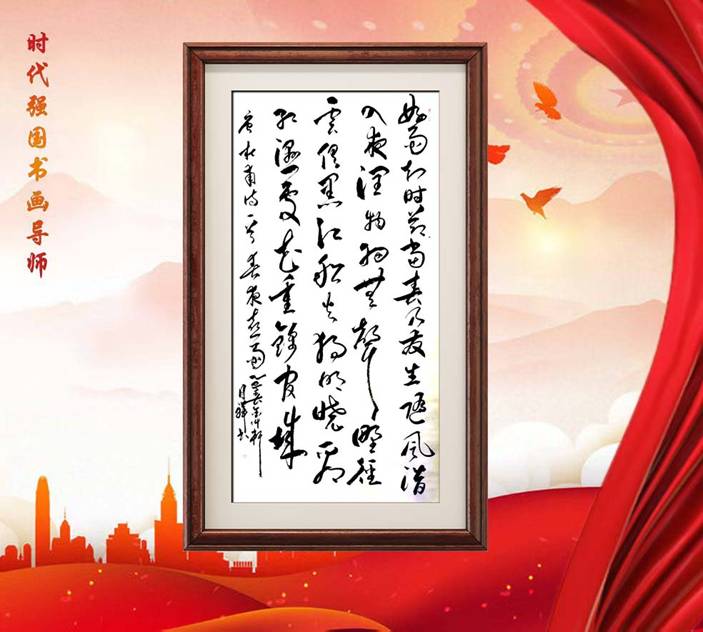 时代强国书画导师
好雨知时節当春乃发生随风潜
入夜润物细無聲野徑
雲俱黑江船火独明晓看
红湿处花重锦官城
唐杜甫诗一首春夜喜雨